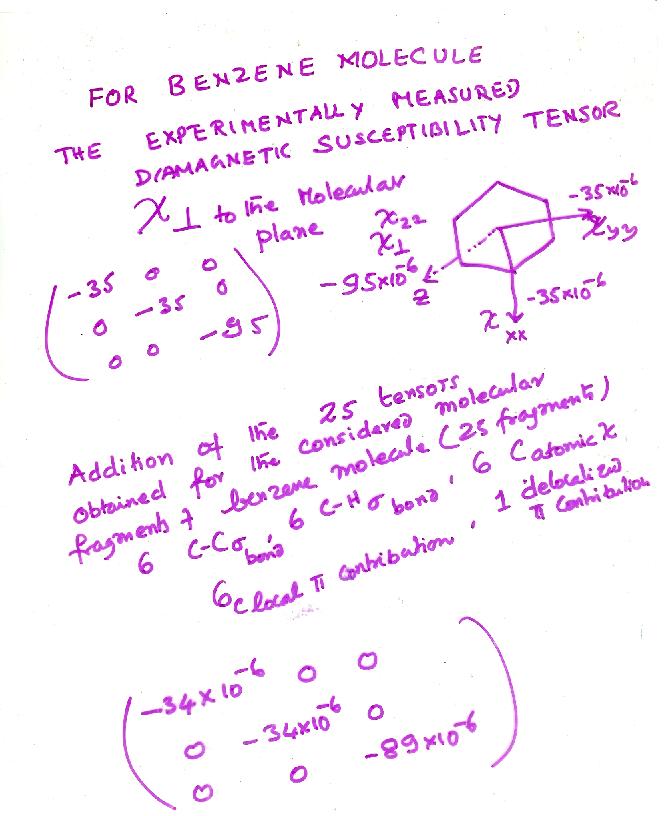 FOR BENZENE MOLECULE
THE EXPERIMENTALLY MEASURED
DIAMAGNETIC SUSCEPTIBILITY TENSOR
χ⊥ to the Molecular
plane
χzz
χ⊥
-95×10⁻⁶
z
-35×10⁻⁶
χyy
-35×10⁻⁶
χ
xx
-35 0 0
0 -35 0
0 0 -95
Addition of the 25 tensors
obtained for the considered molecular
fragments of benzene molecule (25 fragments)
6 C-C σ bond, 6 C-H σ bond, 6 C atomic χ
6 C local π contribution, 1 delocalized
π contribution
-34×10⁻⁶ 0 0
0 -34×10⁻⁶ 0
0 0 -89×10⁻⁶